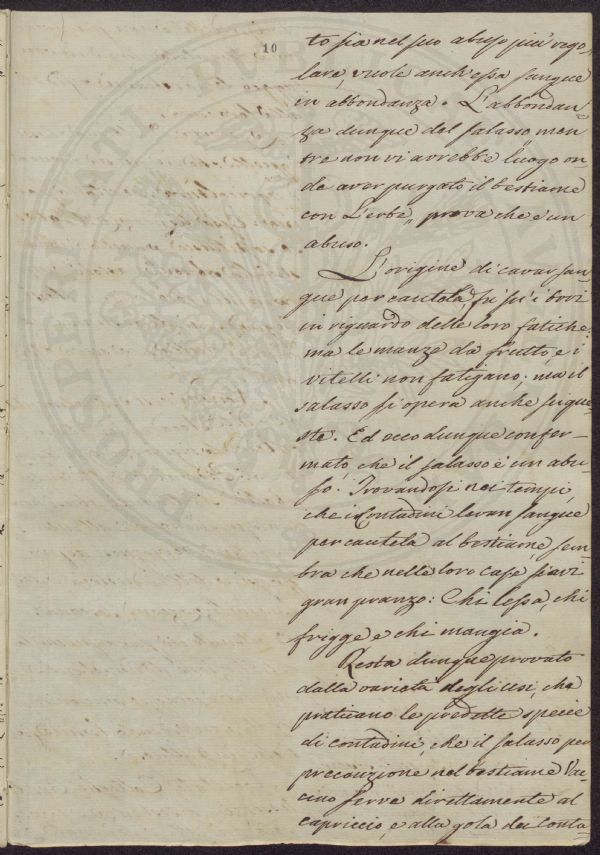 10
to sia nel suo abuso piu' rego-
lare, vuole anch'essa sangue
in abbondanza. L'abbondan-
za dunque del salasso, men-
tre non vi avrebbe luogo on-
de aver purgato il bestiame
con L'erbe, prova che è un
abuso.
L'origine di cavar san-
gue per cautela, fu su i bovi
in riguardo delle loro fatiche:
ma le manze da frutto, e i
vitelli non fatigano; ma il
salasso si opera anche su que-
ste. Ed ecco dunque confer-
mato, che il salasso è un abu-
so. Trovandosi nei tempi,
che i Contadini levan sangue
per cautela al bestiame, sem-
bra che nelle loro case siavi
gran pranzo: Chi lessa, chi
frigge e chi mangia.
Resta dunque provato
dalla varietà degli usi, che
praticano le predette specie
di contadini, che il salasso per
precauzione nel bestiame Vac-
cino serve direttamente al
capriccio, e alla gola dei Conta-
PROSPERITATI PUBLICAE